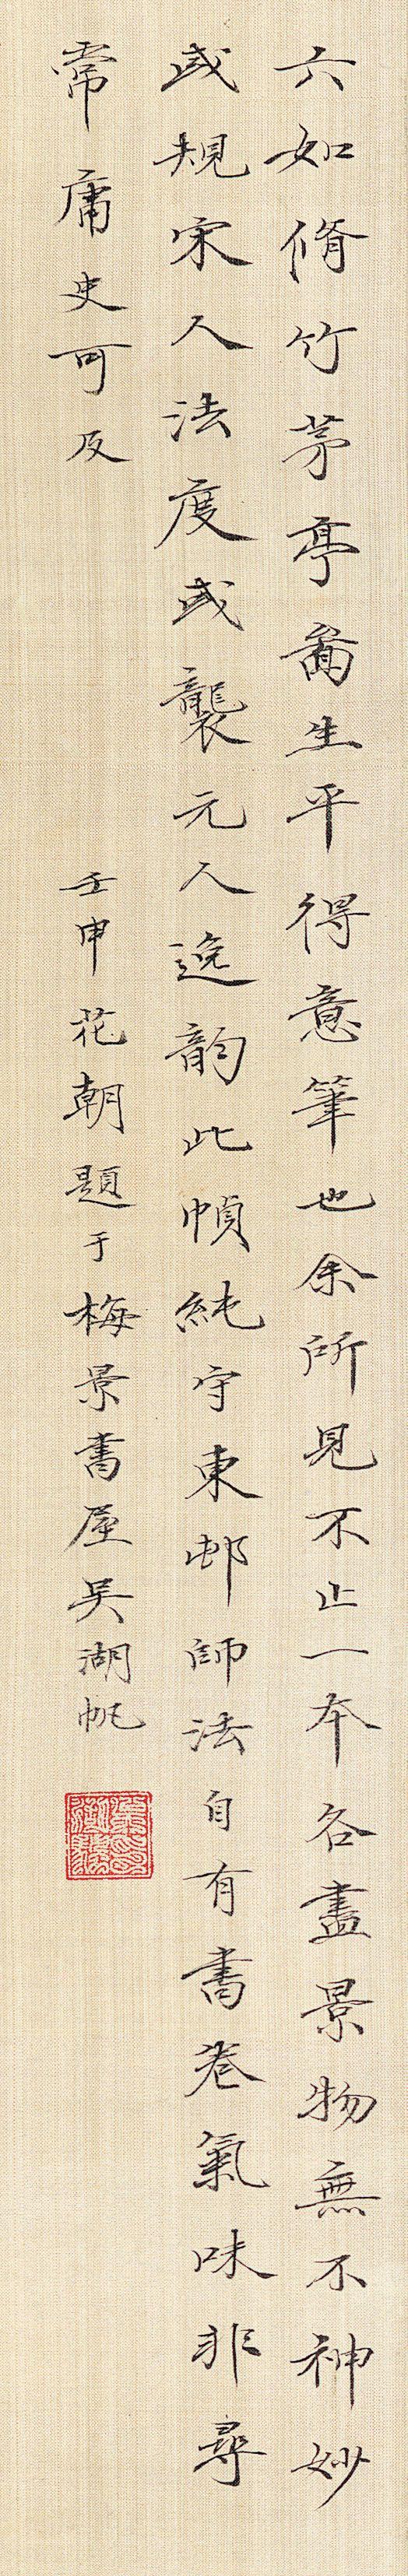 六如脩竹茅亭爲生平得意筆也余所見不止一本各盡景物無不神妙
或規宋人法度或襲元人逸韵此幀純守東邨師法自有書卷氣味非尋
常庸史可及
壬申花朝題于梅景書屋吳湖帆